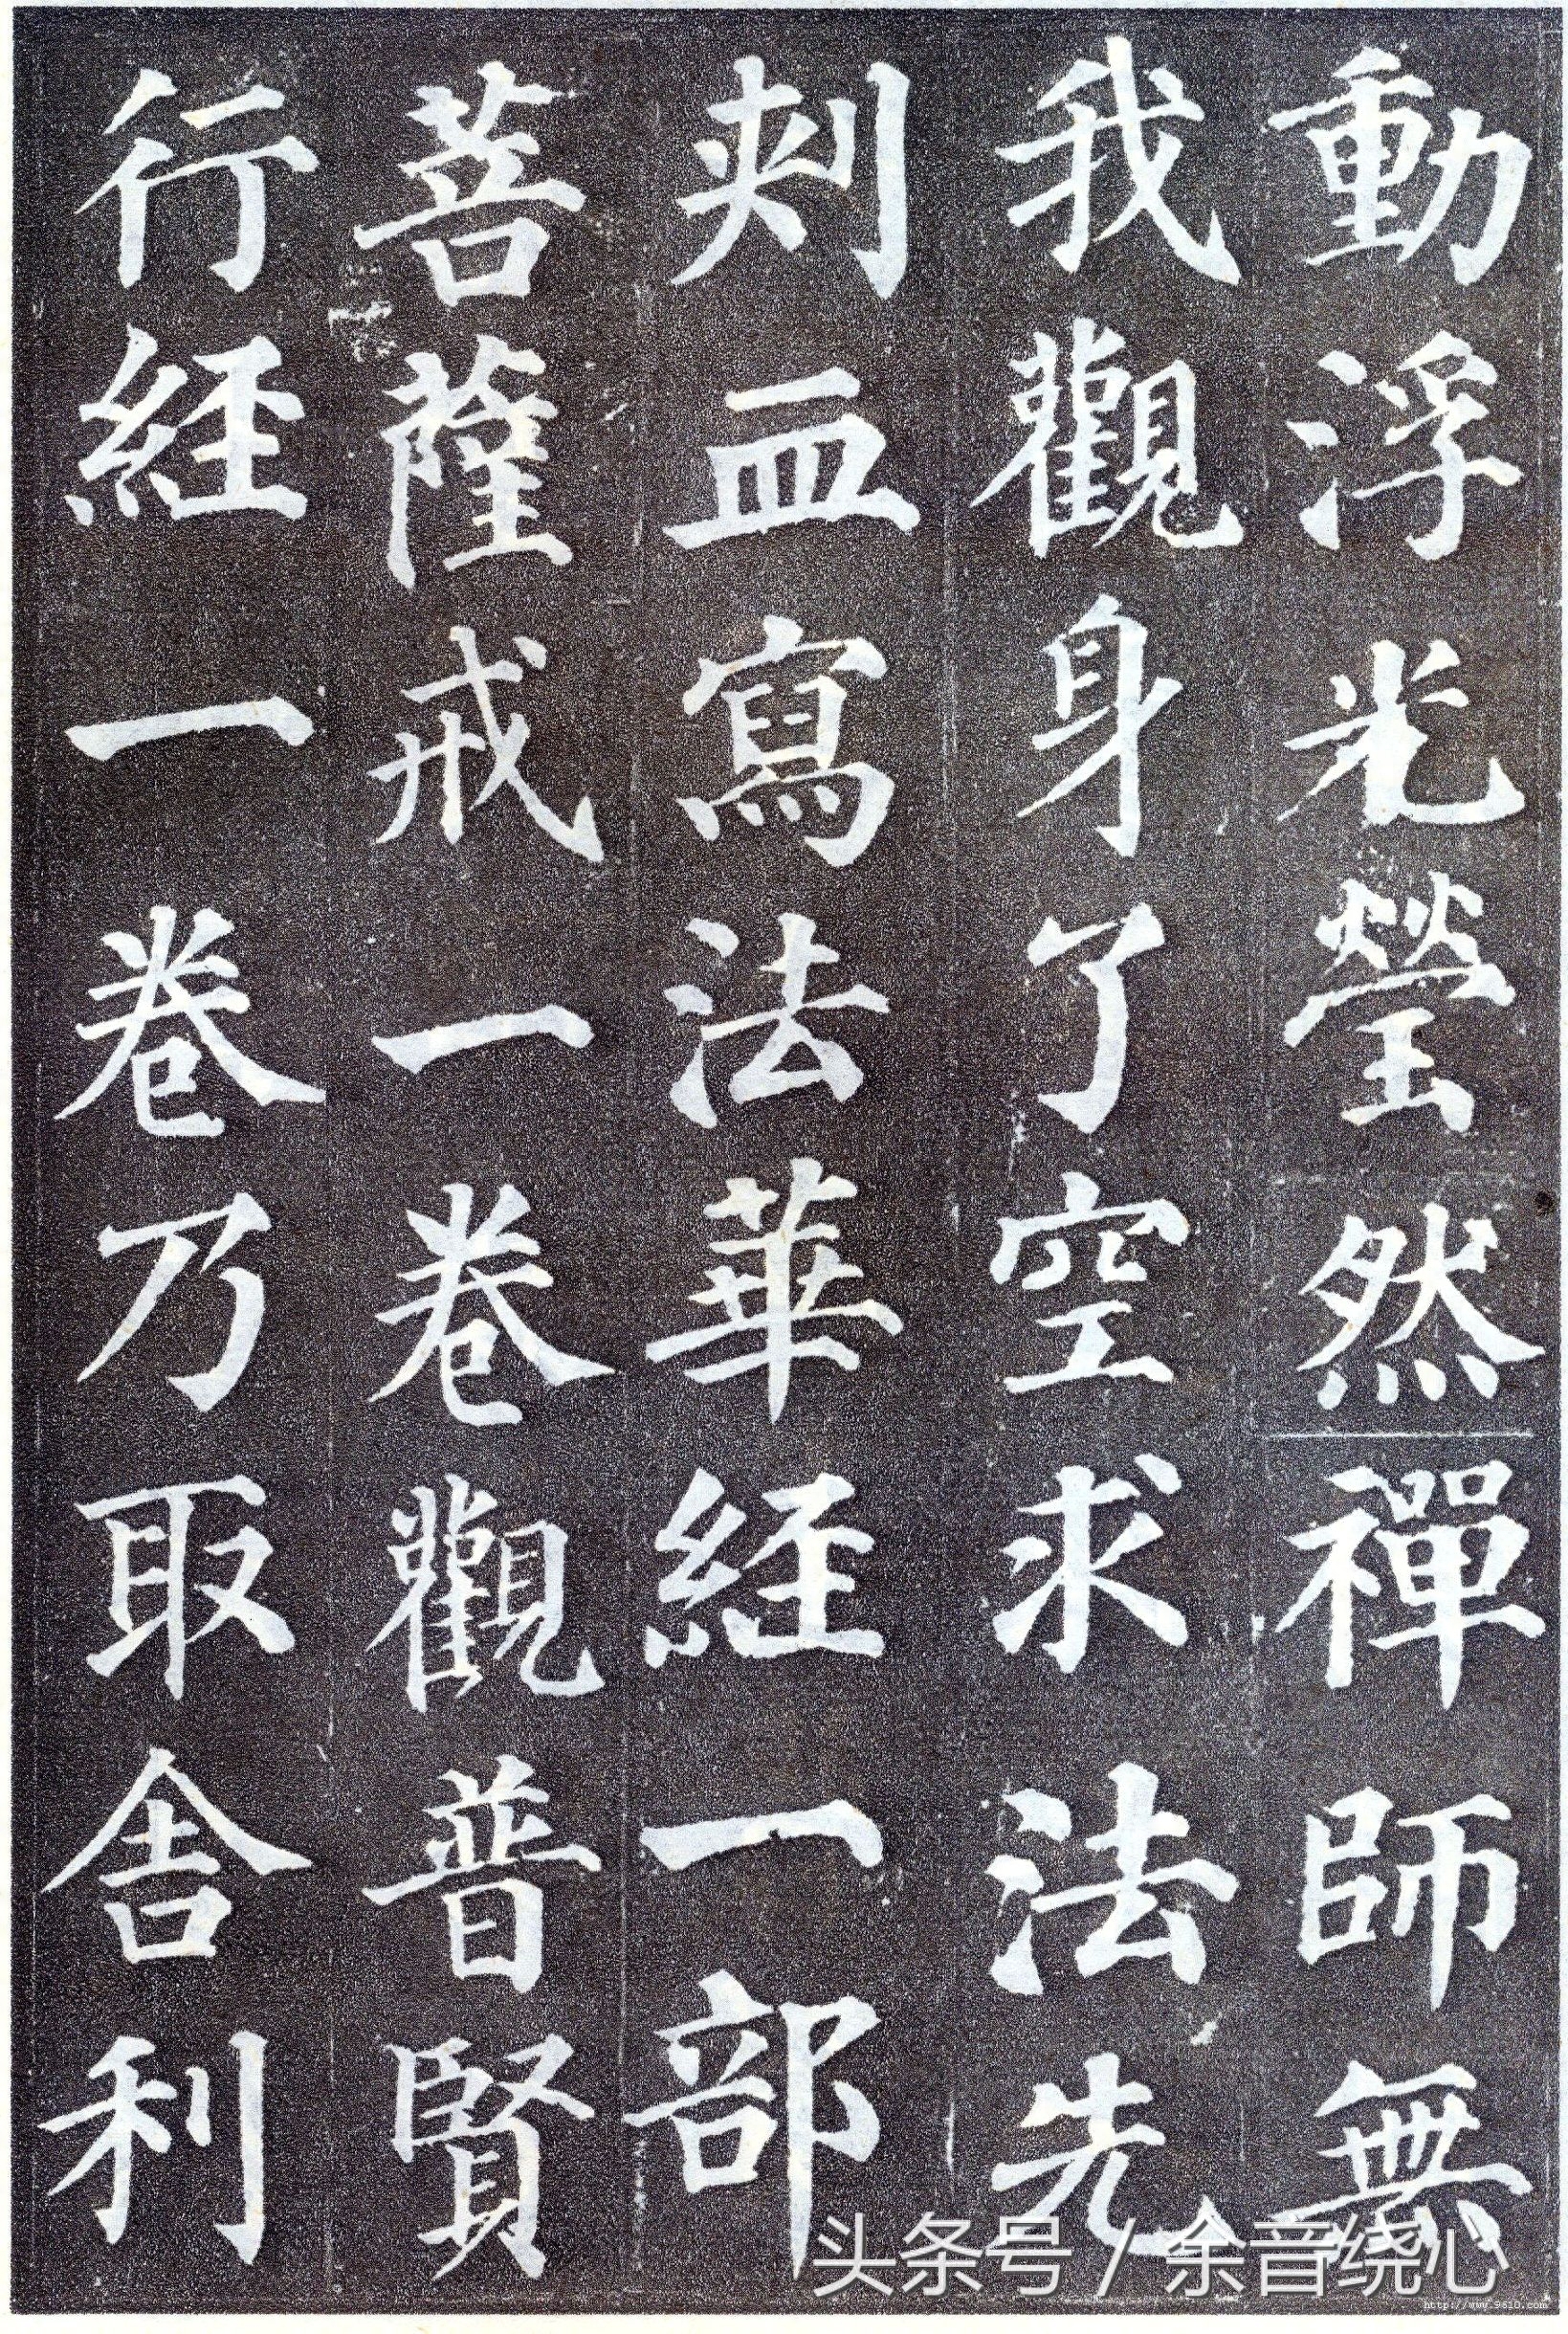 動浮光瑩然禪師無
我觀身了空求法先
刺血寫法華経一部
菩薩戒一卷觀普賢
行経一卷乃取舍利
头条号 / 余音绕心
http://www.9610.com